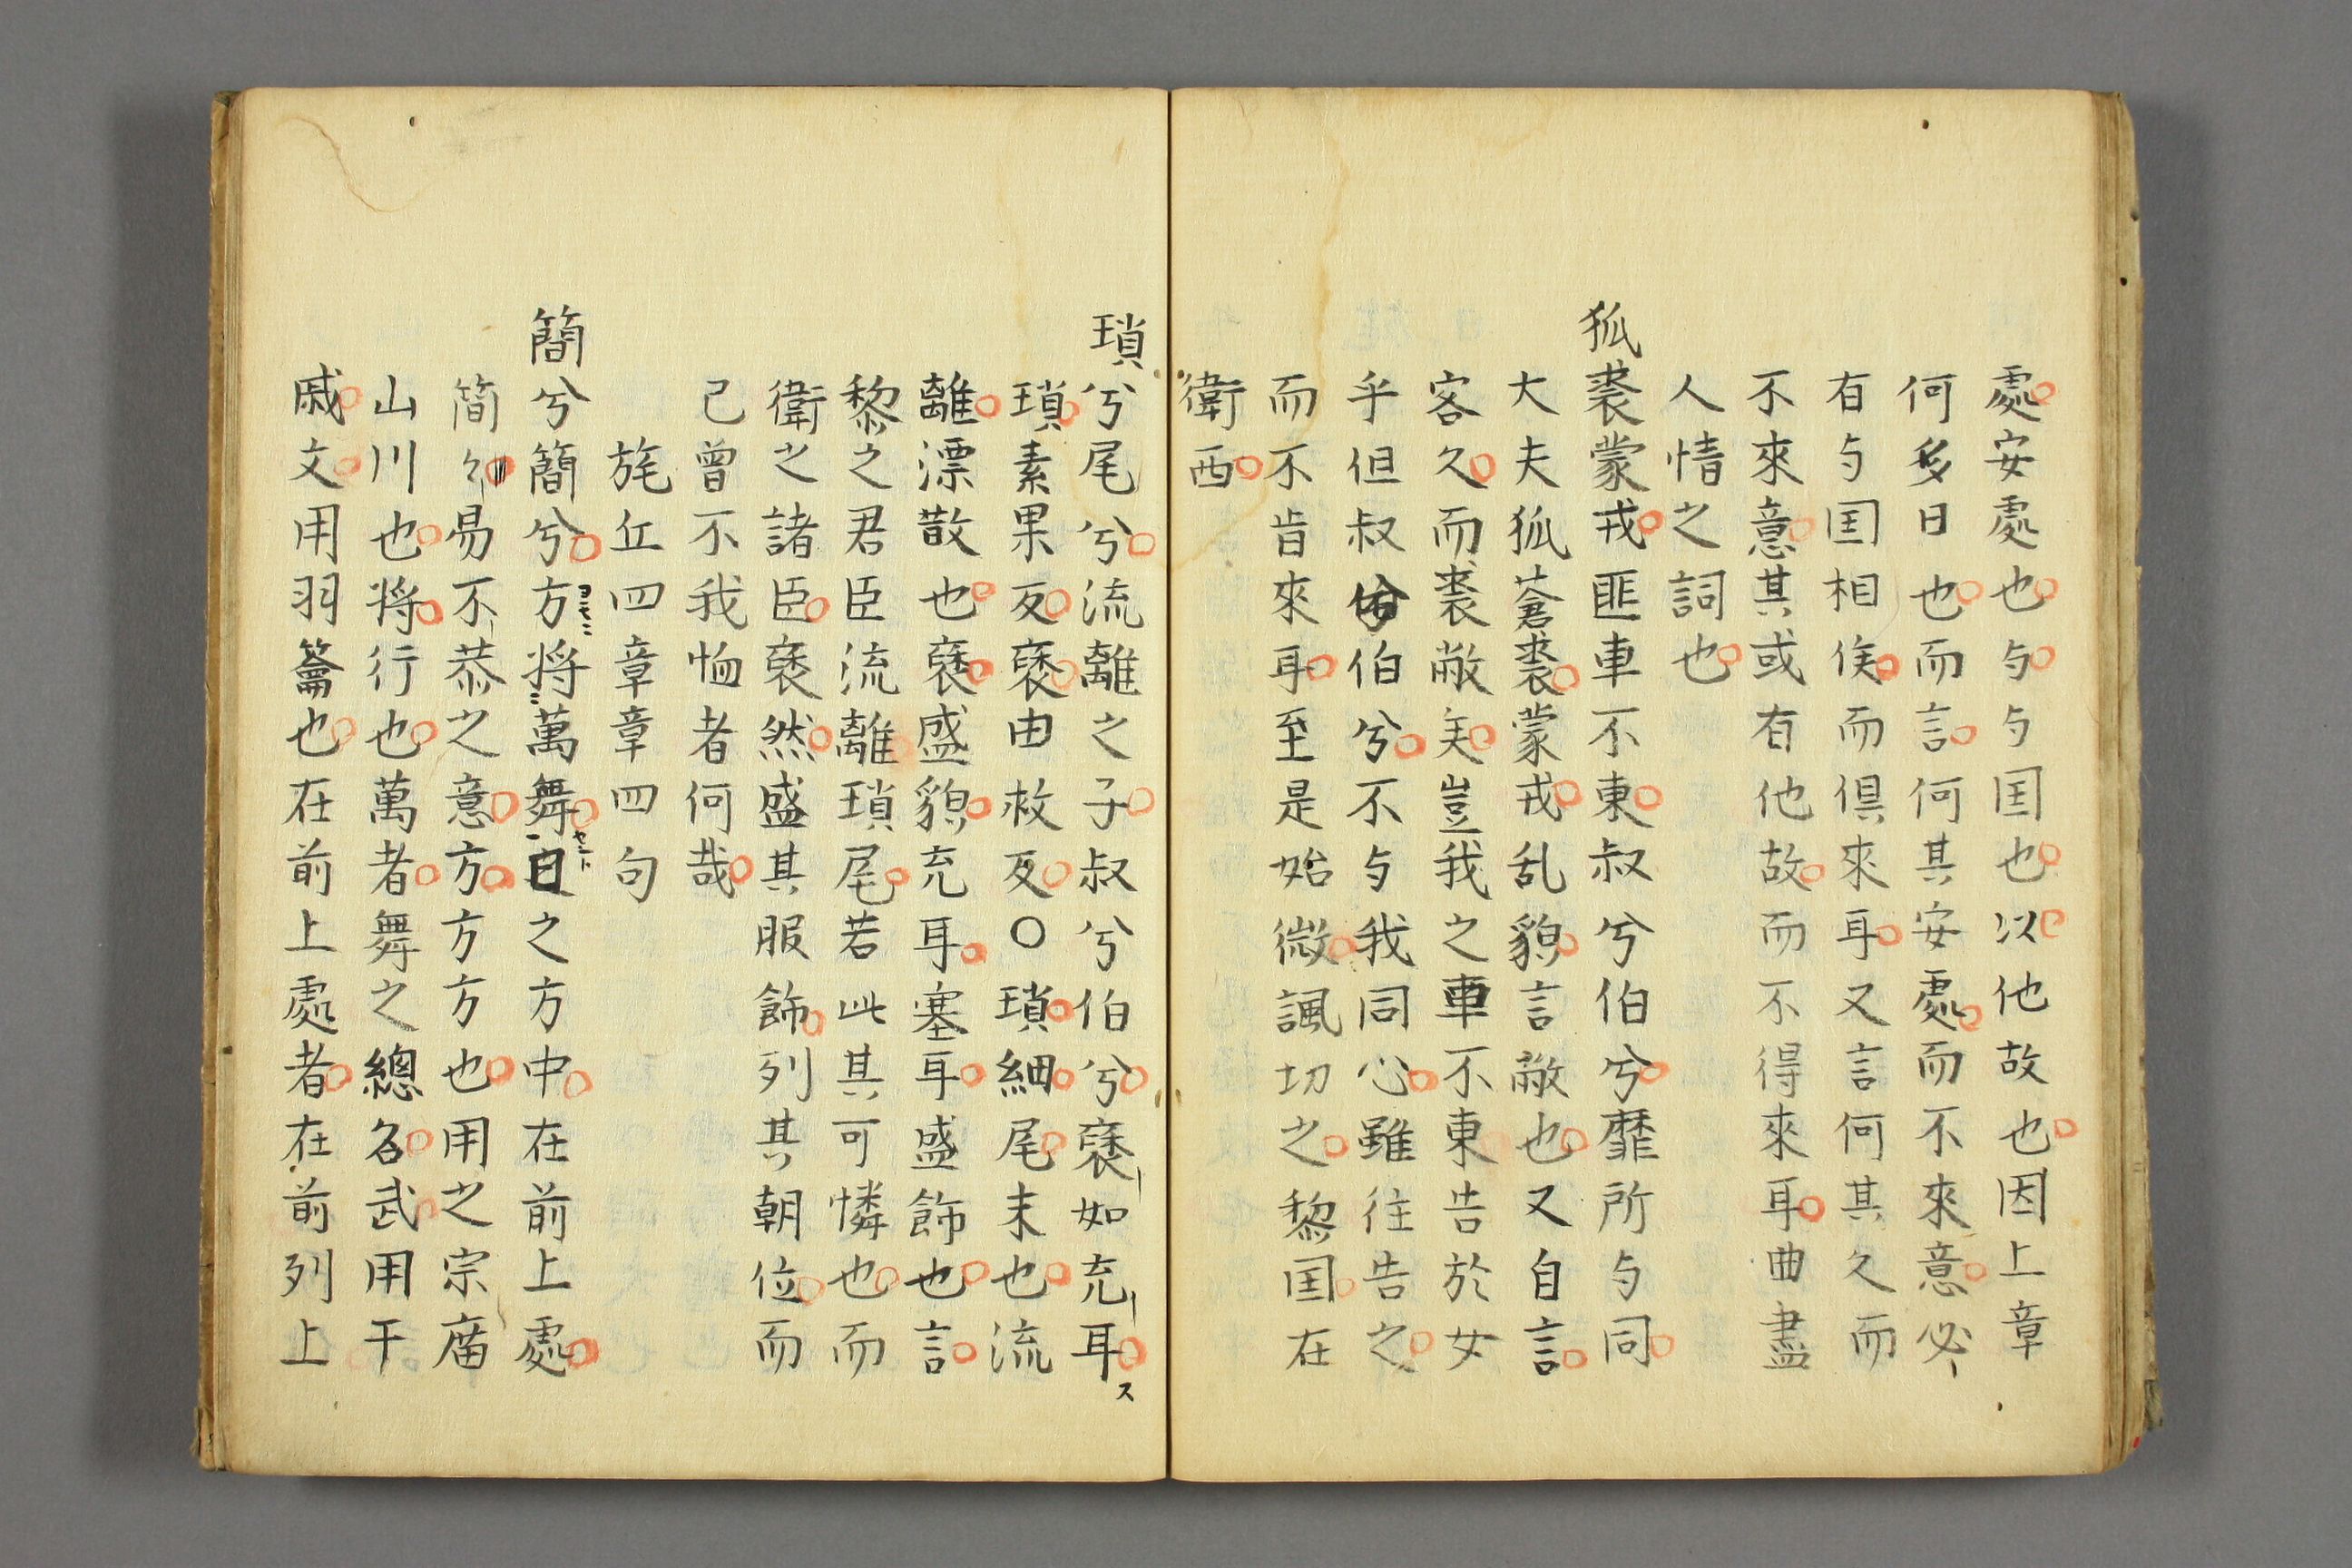 處安處也与与国也以他故也因上章
何多日也而言何其安處而不來意必
有与国相俟而倶來耳又言何其久而
不來意其或有他故而不得來耳曲盡
人情之詞也
狐裘蒙戎匪車不東叔兮伯兮靡所与同
大夫狐蒼裘蒙戎乱貌言敝也又自言
客久而裘敝矣豈我之車不東告於女
乎但叔兮伯兮不与我同心雖往告之
而不肯來耳至是始微諷切之黎国在
衛西
瑣兮尾兮流離之子叔兮伯兮褎如充耳ス
瑣素果反褎由救反〇瑣細尾末也流
離漂散也褎盛貌充耳塞耳盛飾也言
黎之君臣流離瑣尾若此其可憐也而
衛之諸臣褎然盛其服飾列其朝位而
己曾不我恤者何哉
旄丘四章章四句
簡兮簡兮方将萬舞日之方中在前上處
簡々易不恭之意方方方也用之宗庿
山川也将行也萬者舞之總名武用干
戚文用羽籥也在前上處者在前列上